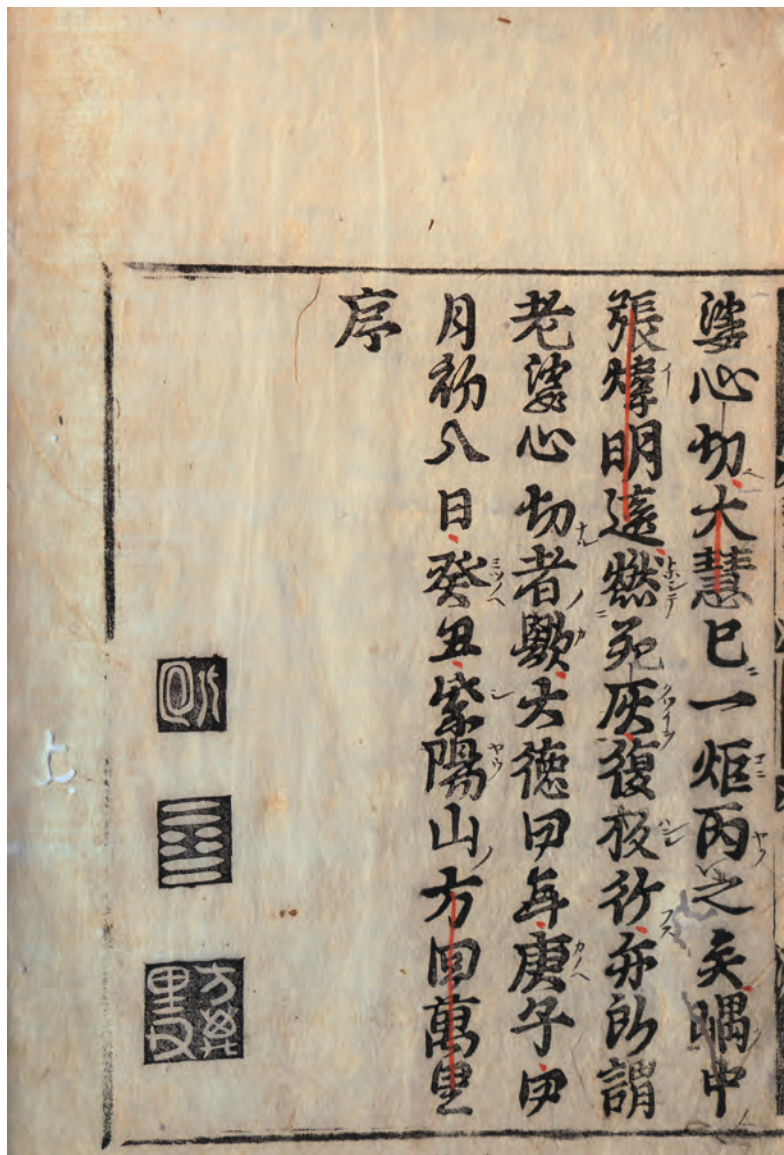 婆心切大慧已一炬丙之矣嵎中
張煒明遠燃死灰復板行亦所謂
老婆心切者歟大徳四年庚子四
月初八日癸丑紫陽山方回萬里
序
方萬里父